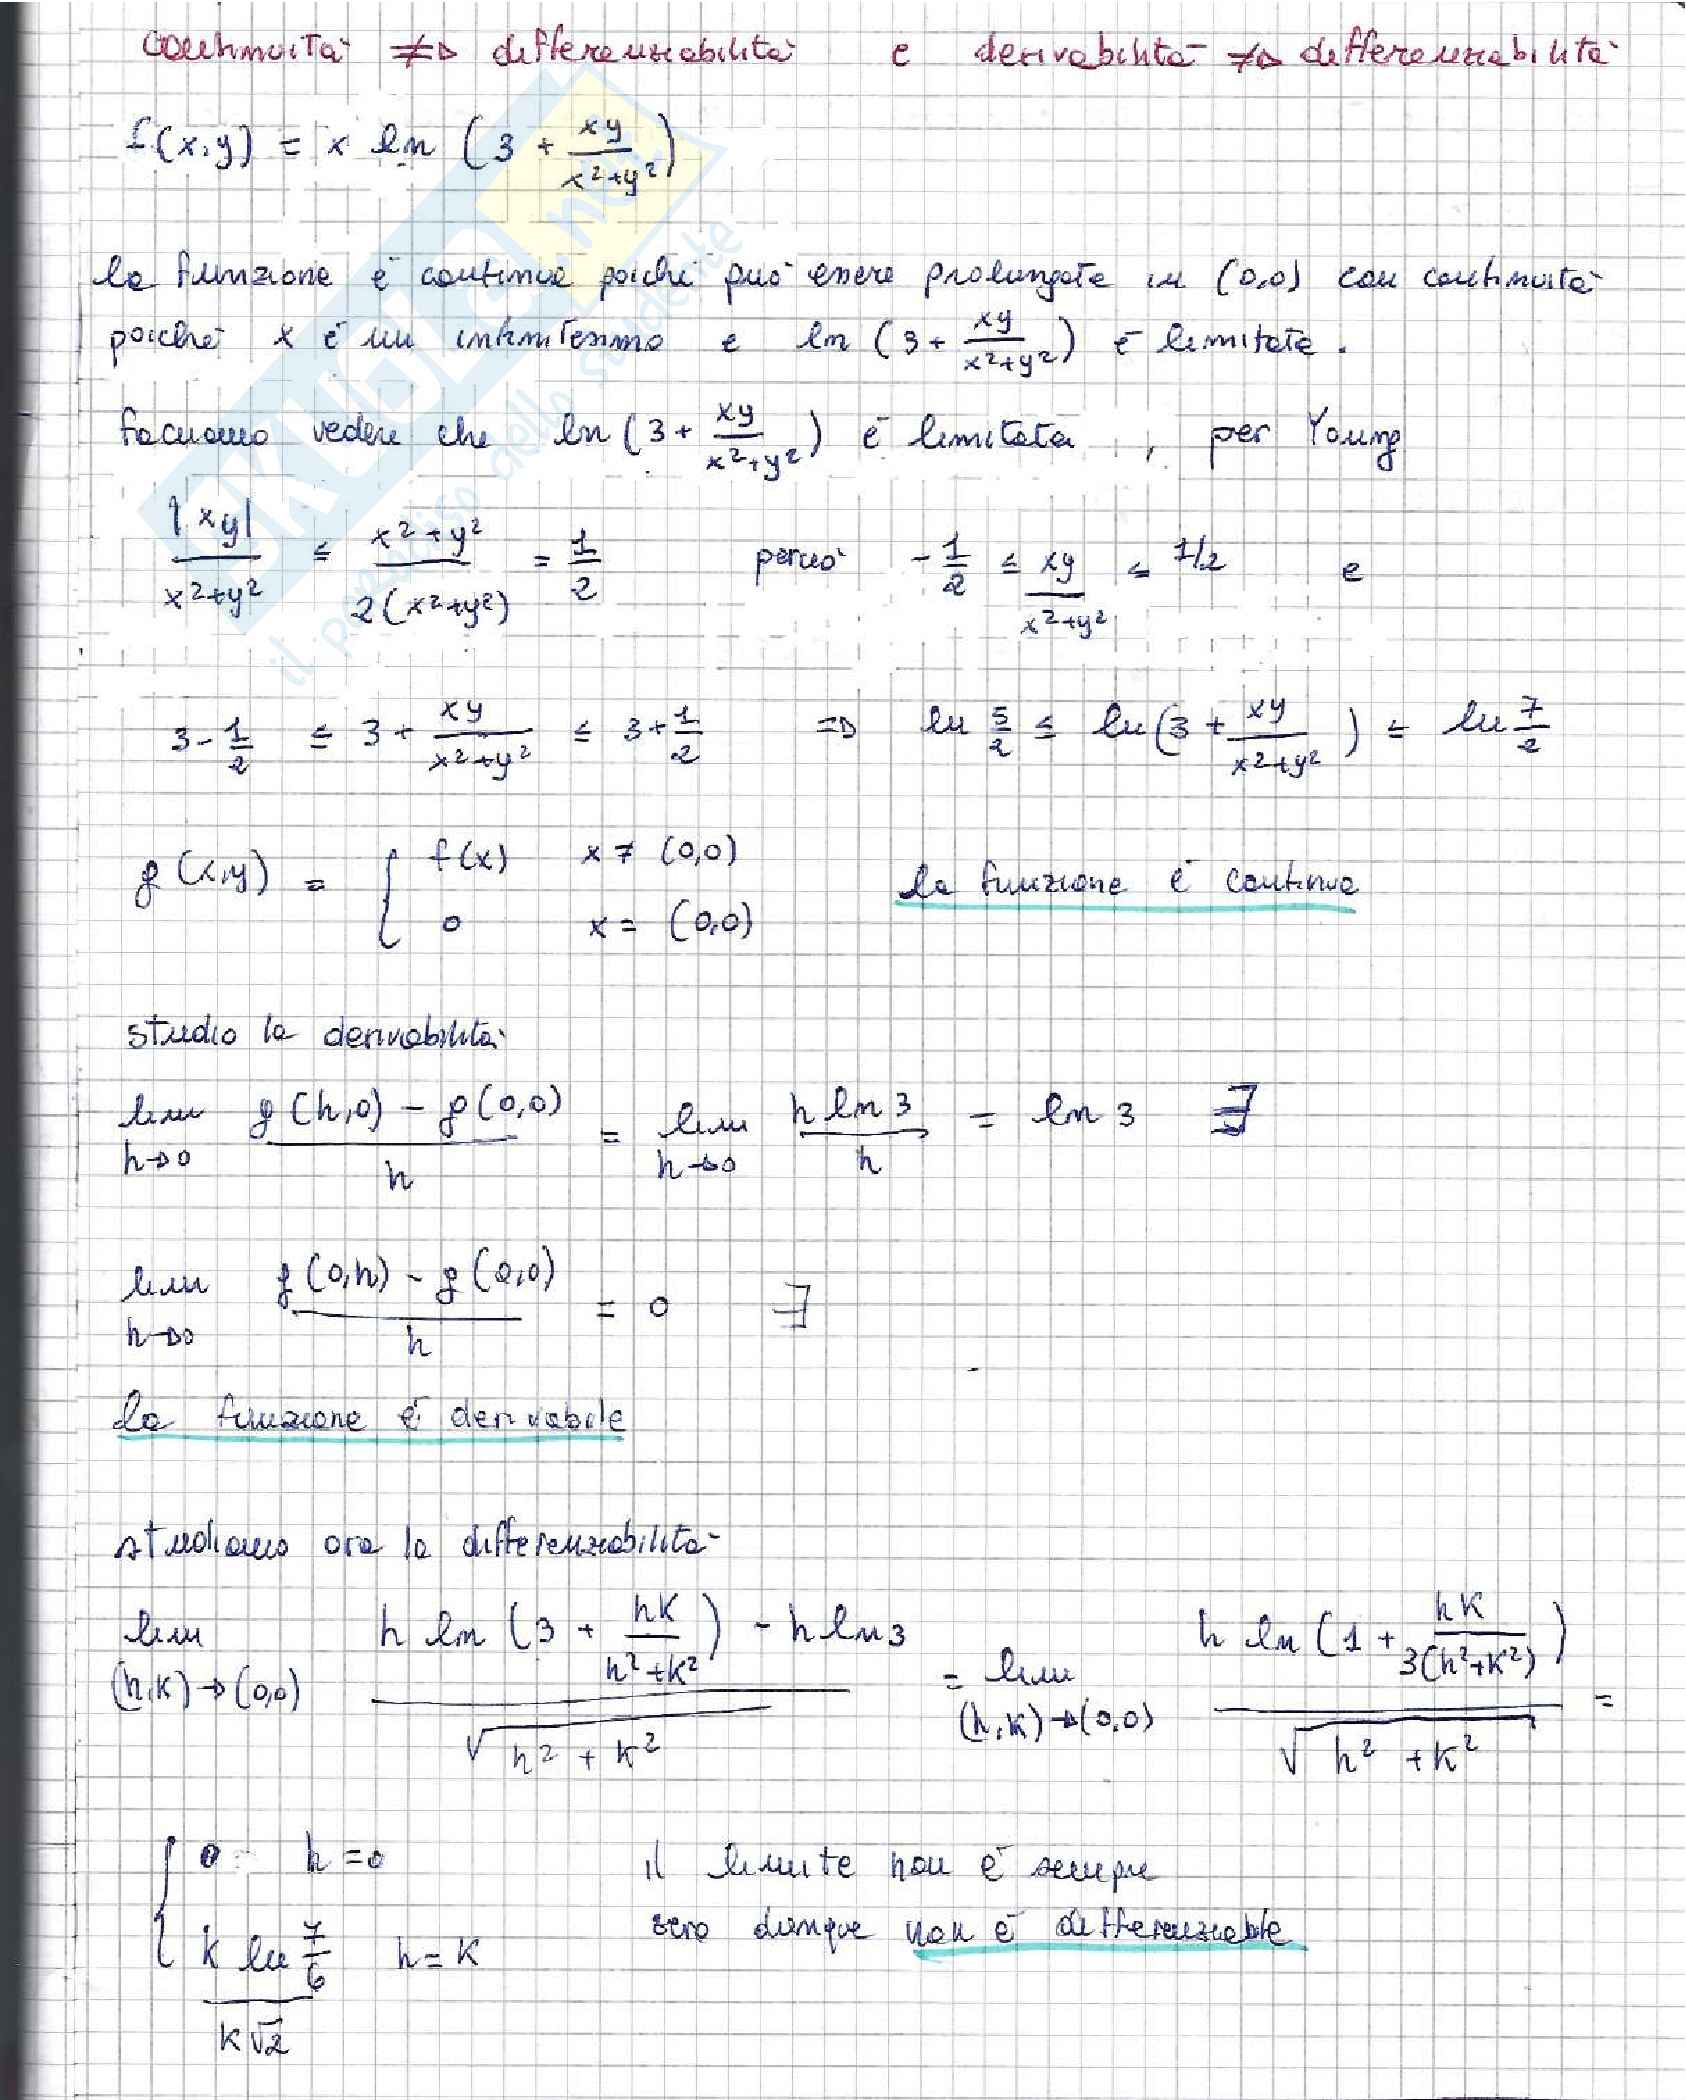 continuità ≠> differenziabilità e derivabilità ≠> differenziabilità
f(x,y) = x ln (3 + xy/(x²+y²))
la funzione è continua poiché può essere prolungata in (0,0) con continuità
poiché x è un infinitesimo e ln (3 + xy/(x²+y²)) è limitata.
facciamo vedere che ln (3 + xy/(x²+y²)) è limitata, per Young
|xy|/(x²+y²) ≤ (x²+y²)/(2(x²+y²)) = 1/2 perciò -1/2 ≤ xy/(x²+y²) ≤ 1/2 e
3 - 1/2 ≤ 3 + xy/(x²+y²) ≤ 3 + 1/2 => ln 5/2 ≤ ln (3 + xy/(x²+y²)) ≤ ln 7/2
g(x,y) = { f(x) x ≠ (0,0)
0 x = (0,0)
la funzione è continua
studio la derivabilità
lim h→0 (g(h,0) - g(0,0))/h = lim h→0 (h ln 3)/h = ln 3 ∃
lim h→0 (g(0,h) - g(0,0))/h = 0 ∃
la funzione è derivabile
studiamo ora la differenziabilità
lim (h,k)→(0,0) (h ln (3 + hk/(h²+k²)) - h ln 3)/√(h²+k²) = lim (h,k)→(0,0) (h ln (1 + hk/(3(h²+k²))))/√(h²+k²) =
{ 0 h=0
(k ln 7/6)/(k√2) h=k
il limite non è sempre
zero dunque non è differenziabile
SKUOLA.net
il paradiso dello studente